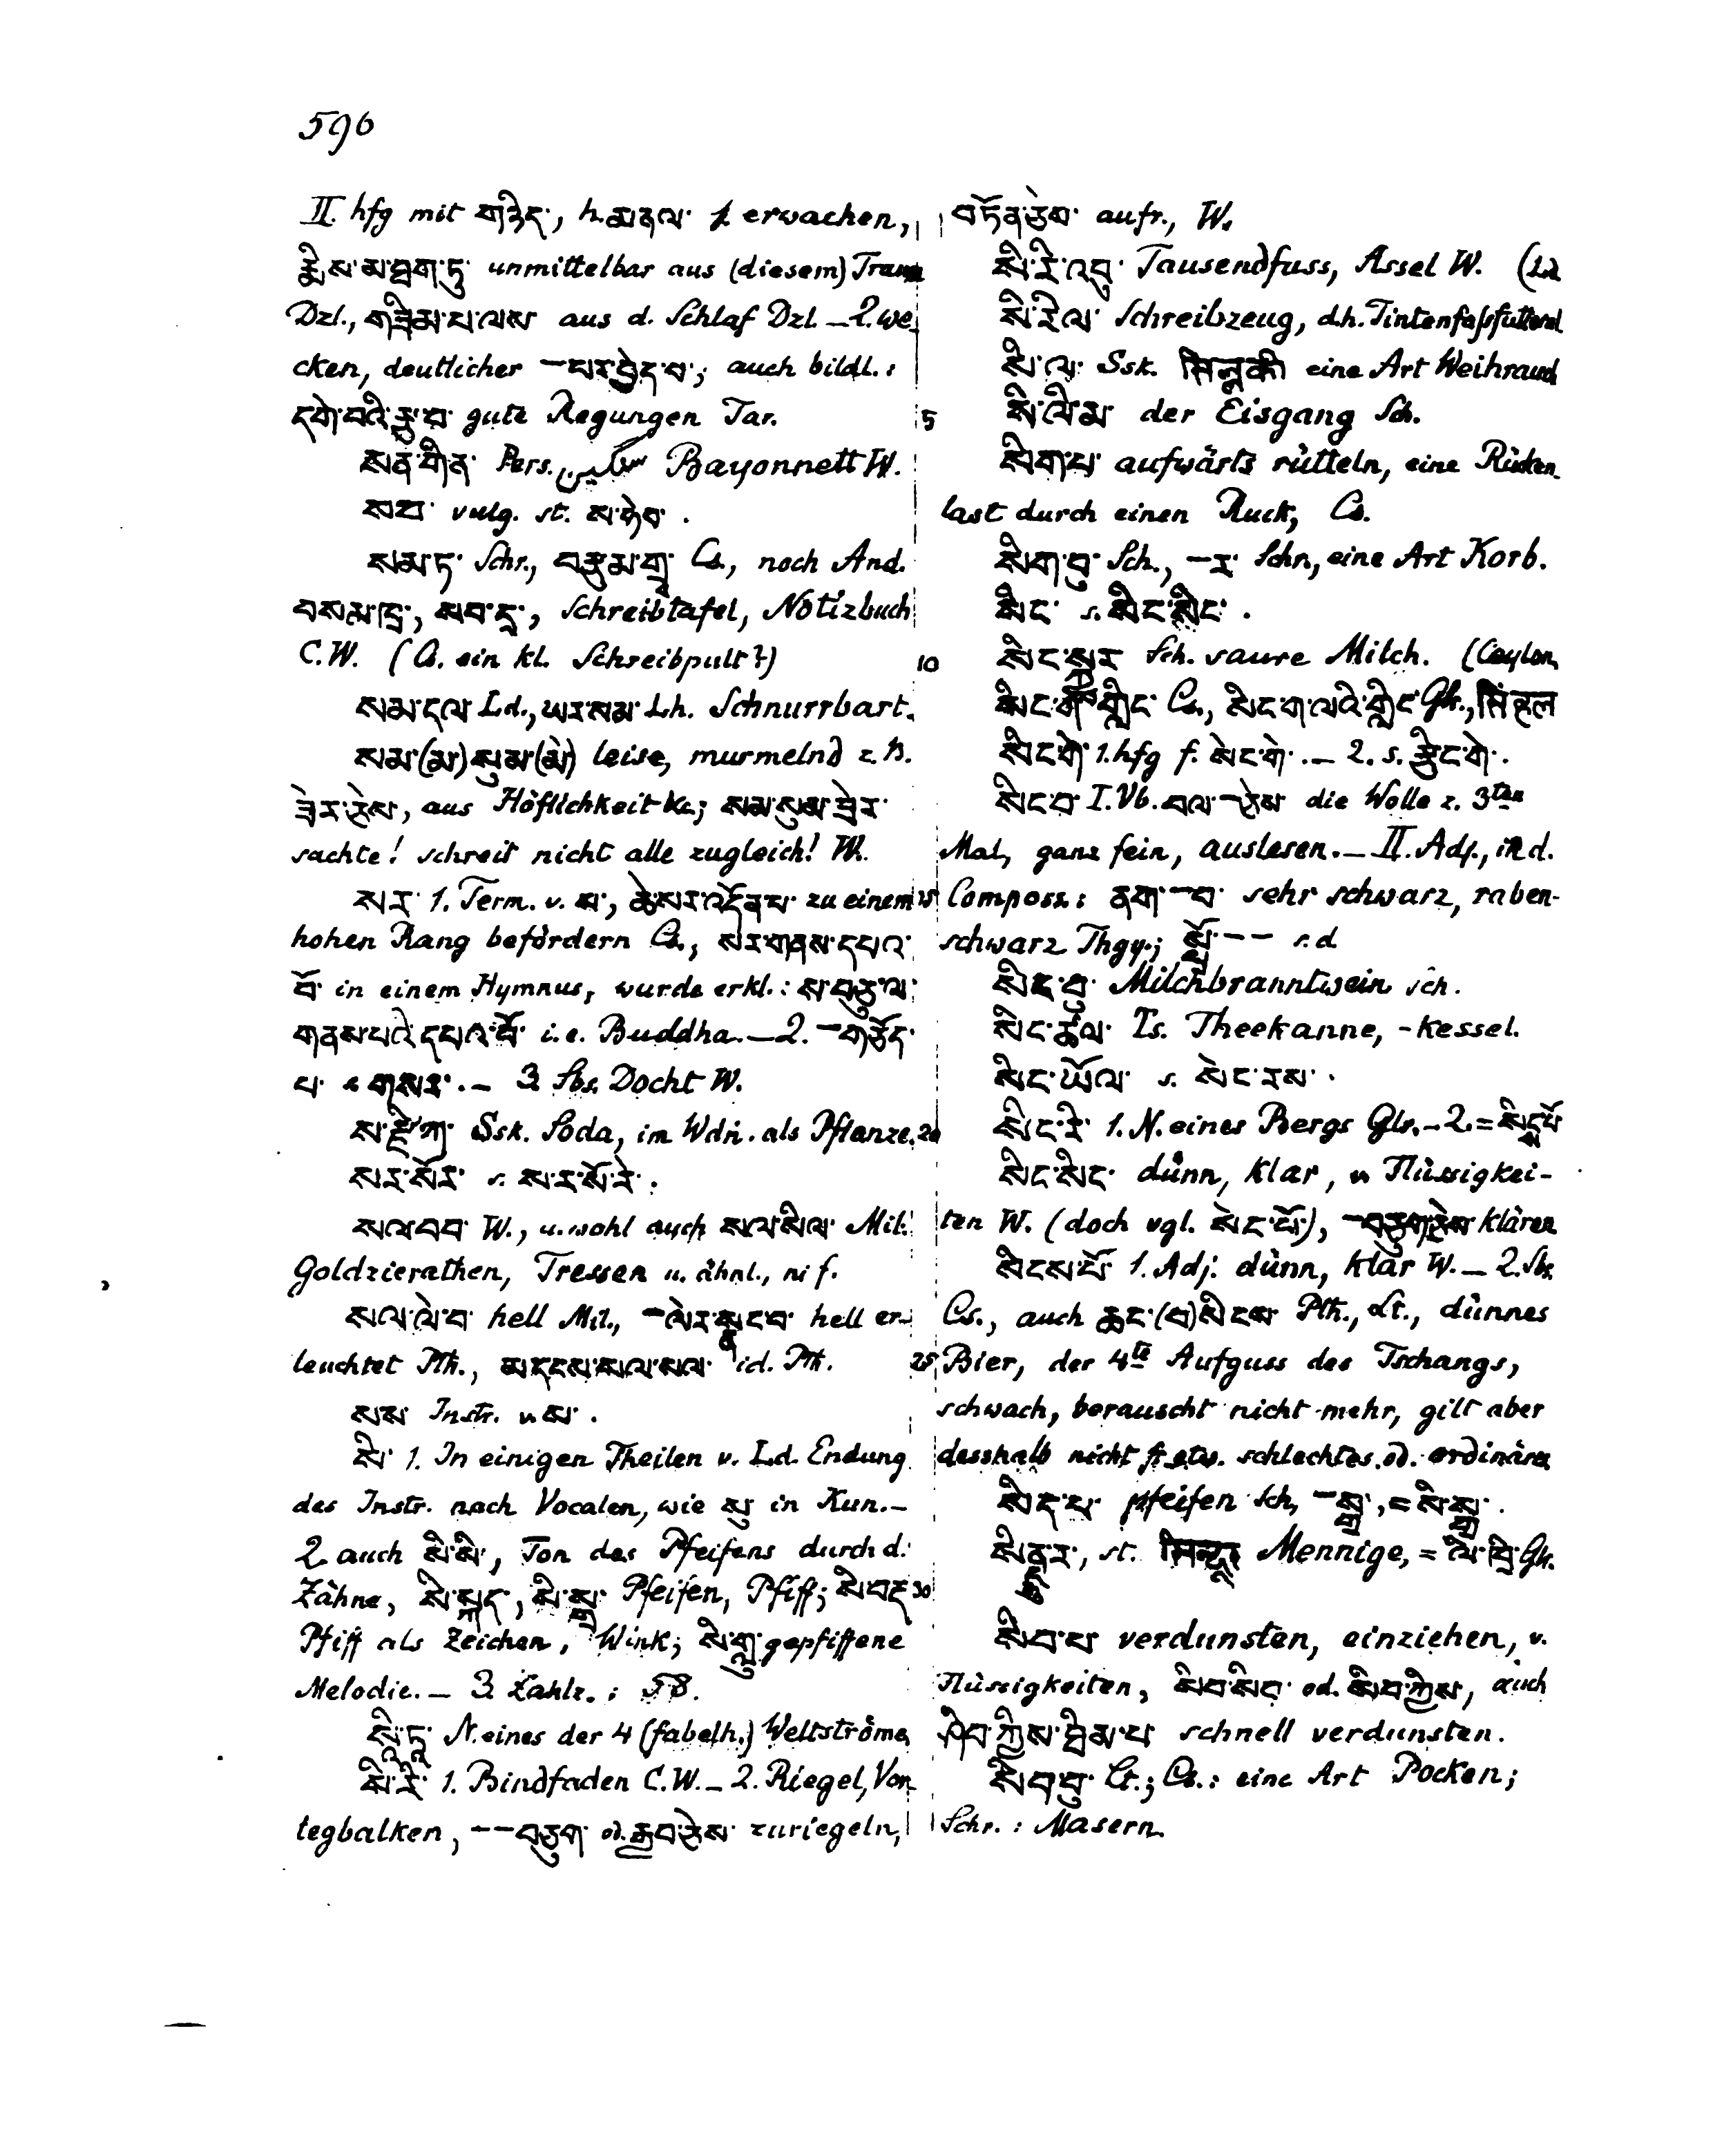 590
II. hfg mit གཉིད་, h. མནལ་ 1. erwachen,
རྨིས་མ་ཐག་ཏུ་ unmittelbar aus (diesem) Traum
Dzl., གཟིམ་པ་ལས aus d. Schlaf Dzl. _ 2. we-
cken, deutlicher –པར་བྱེད་པ་; auch bildl.:
དགེ་བའི་རྩ་བ་ gute Regungen Tar.
སན་གིན་ Pers. سنگین Bayonnett W.
སབ་ vulg. st. ས་ཧེབ་ .
སམ་ཏ་ Schr., བསམ་གྲ་ Cs., noch And.
བསམ་ཁྲ་, སབ་དྲ་, Schreibtafel, Notizbuch
C.W. (Cs. ein kl. Schreibpult?)
སམ་དལ་ Ld., ཡར་སམ་ Lh. Schnurrbart.
སམ་(མ་)སུམ་(མེ་) leise, murmelnd z.B.
ཟེར་ཅེས་, aus Höflichkeit &c; སམ་སུམ་ཟེར་
sachte! schreit nicht alle zugleich! W.
སར་ 1. Term. v. ས་, ཆེ་སར་འདོན་པ་ zu einem
hohen Rang befördern Cs., སར་གནས་དཔའ་
བོ་ in einem Hymnus, wurde erkl.: ས་བཅུ་ལ་
གནས་པའི་དཔའ་བོ་ i.e. Buddha. _ 2. –གཅོད་
པ་ s གསར་. _ 3 Sbs. Docht W.
ས་རྫི་ཀ་ Ssk. Soda, im Wdn. als Pflanze.
སར་སོར་ s. ས་ར་སོ་རེ་.
སལ་བབ་ W., u. wohl auch སལ་སིལ་ Mil.
Goldzierathen, Tressen u. ähnl., ni f.
སལ་ལེ་བ་ hell Mil., –ལེར་སྣང་བ་ hell er-
leuchtet Pth., མདངས་སལ་སལ་ id. Pth.
སས་ Instr. v ས་ .
སི་ 1. In einigen Theilen v. Ld. Endung
des Instr. nach Vocalen, wie སུ་ in Kun. _
2 auch སི་སི་, Ton des Pfeifens durch d.
Zähne, སི་སྐད་, སི་སྒྲ་ Pfeifen, Pfiff; སི་བརྡ་
Pfiff als Zeichen, Wink; སི་གླུ་ gepfiffene
Melodie. _ 3 Zahlz.: 58.
སི་ཏཱ་ N. eines der 4 (fabelh.) Weltströme
སི་རི་ 1. Bindfaden C.W. _ 2. Riegel, Vor-
legbalken, ––བཅུག་ od. རྒྱབ་ཅེས་ zuriegeln,
བཏོན་ཅེས་ aufr., W.
སི་རི་འབུ་ Tausendfuss, Assel W. (Ld
སི་རིལ་ Schreibzeug, d.h. Tintenfaßfutteral
སི་ལ་ Ssk. eine Art Weihrauch
5 སི་ལིམ་ der Eisgang Sch.
སིག་པ་ aufwärts rütteln, eine Rücken-
last durch einen Ruck, Cs.
སིག་བུ་ Sch., –ར་ Schr, eine Art Korb.
སིང་ s. སིང་སིང་ .
10 སིང་སྐྱུར Sch. saure Milch. (Ceylon,
སིང་ག་གླིང་ Cs., སིང་ག་ལའི་གླིང་ Glr.,
སིང་གེ་ 1. hfg f. སེང་གེ་. _ 2. s. རྩིང་གེ་.
སིང་བ་ I. Vb. བལ་–ཅེས་ die Wolle z. 3ten
Mal, ganz fein, auslesen. _ II. Adj., in d.
15 Composs: ནག་–བ་ sehr schwarz, raben-
schwarz Thgy.; –– s.d
སིང་བུ་ Milchbranntwein Sch.
སིང་ཚོལ་ Ts. Theekanne, -kessel.
སིང་ཡོལ་ s. སེང་རས་.
20 སིང་རི་ 1. N. eines Bergs Glr. _ 2. =
སིང་སིང་ dünn, klar, v Flüssigkei-
ten W. (doch vgl. སེང་པོ་), –བཅུག་ཅེས་ klären
སིངས་པོ་ 1. Adj. dünn, klar W. _ 2. Sbs.
Cs., auch ཆང་(བ)སིངས་ Pth., Lt., dünnes
25 Bier, der 4te Aufguss des Tschangs,
schwach, berauscht nicht mehr, gilt aber
desshalb nicht f. etw. schlechtes. od. ordinäres
སིད་པ་ pfeifen Sch, –སྒྲ་, = སི་སྒྲ་.
སིནྡྷུ་ར་, st. Mennige, = ལི་ཁྲི་ Glr.
30
སིབ་པ་ verdunsten, einziehen, v.
Flüssigkeiten, སིབ་སིབ་ od. སིབ་ཀྱིས་, auch
ཤིབ་ཀྱིས་ཐིམ་པ་ schnell verdunsten.
སིབ་བུ་ Lt.; Cs.: eine Art Pocken;
Schr.: Masern.